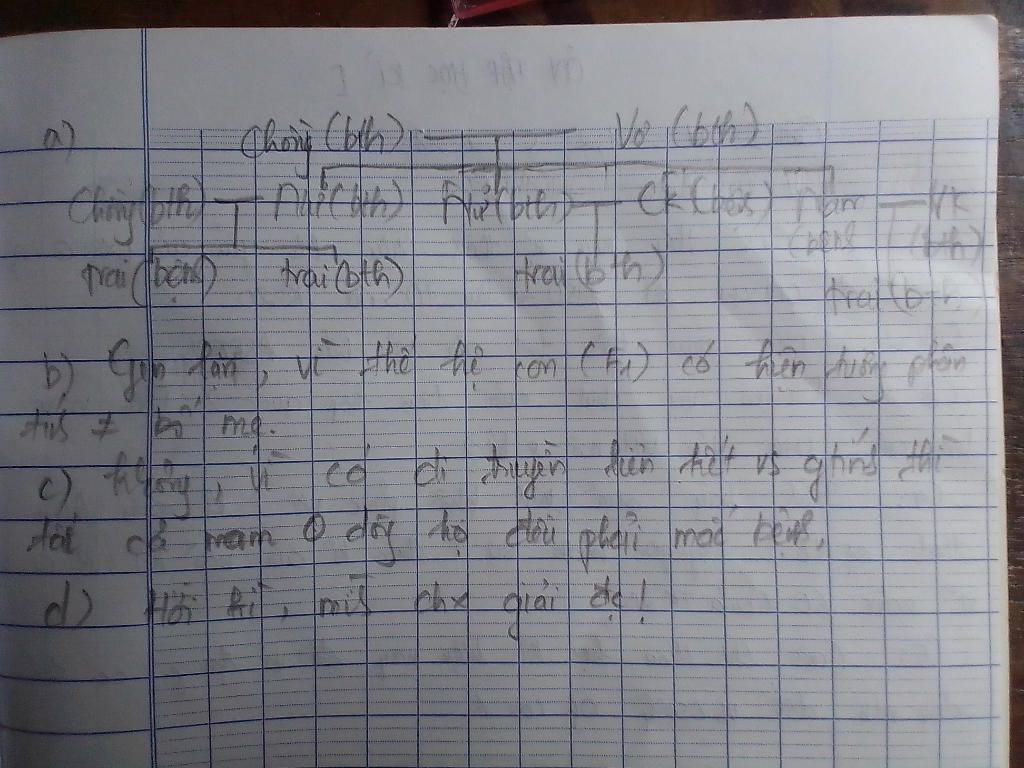 a) Chồng (bth) Vơ (bth)
Chồng (bth) Nữ (bth) Nữ (bth) Ck (bệnh) Nam Vk
(bệnh) (bth)
trai (bệnh) trai (bth) trai (bth) trai (bth)
b) Gen lặn, vì thế hệ con (F1) có hiện tượng phân
tính ≠ bố mẹ.
c) Không, vì có di truyền liên kết vs giới tính thì
tất cả nam ở dòng họ đều phải mắc bệnh.
d) Hơi kì, mik chx giải đc!